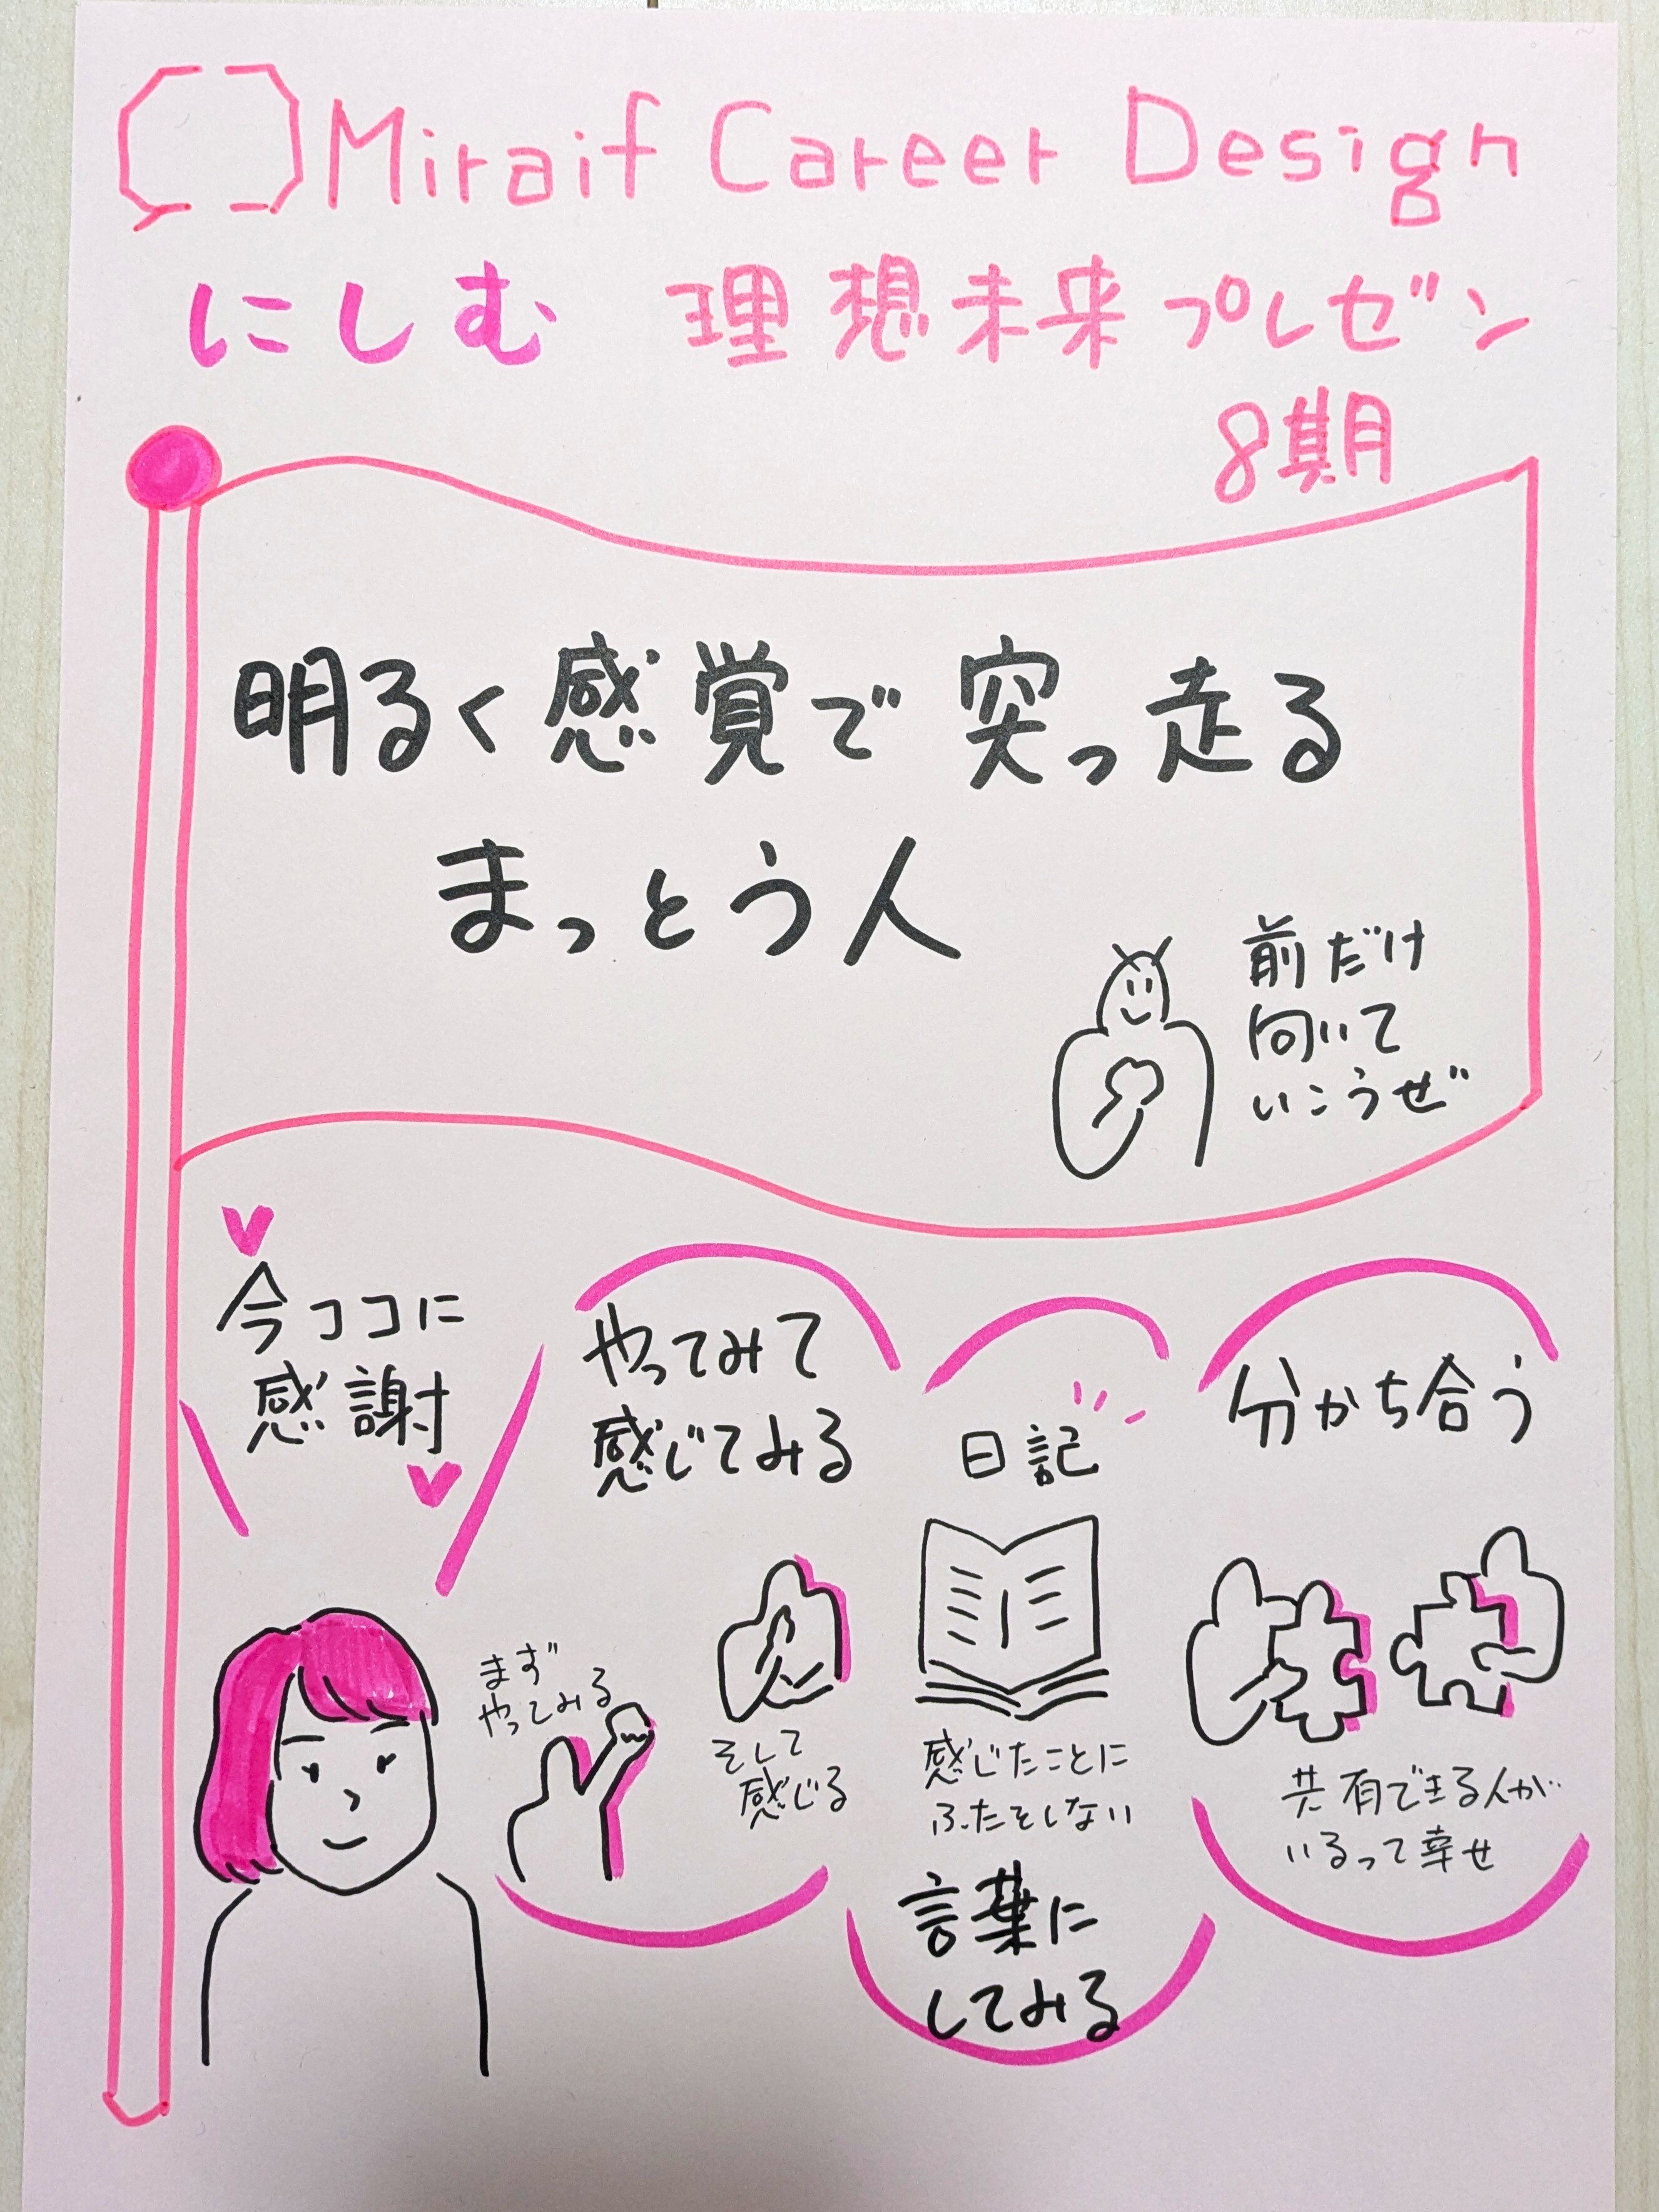 Miraif Career Design
にしむ 理想未来プレゼン
8期
明るく感覚で突っ走る
まっとう人
前だけ
向いて
いこうぜ
今ココに
感謝
やってみて
感じてみる
まず
やってみる
そして
感じる
日記
感じたことに
ふたをしない
言葉に
してみる
分かち合う
共有できる人が
いるって幸せ